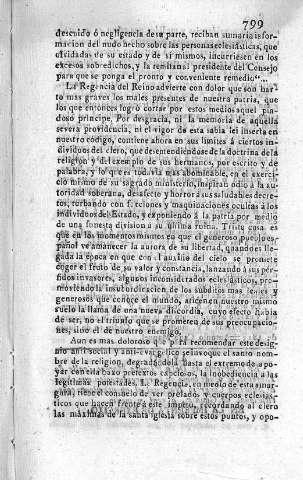 799
descuido ó negligencia de su parte, reciban sumaria infor-
macion del nudo hecho sobre las personas eclesiásticas, que
olvidadas de su estado y de sí mismos, incurriesen en los
excesos sobredichos, y la remitan al presidente del Consejo
para que se ponga el pronto y conveniente remedio"...
La Regencia del Reino advierte con dolor que son har-
to mas graves los males presentes de nuestra patria, que
los que entonces logró cortar por estos medios aquel pia-
doso príncipe. Por desgracia, ni la memoria de aquella
severa providencia, ni el vigor de esta sabia lei inserta en
nuestro código, contiene ahora en sus límites á ciertos in-
dividuos del clero, que desentendiéndose de la doctrina de la
religion y del exemplo de sus hermanos, por escrito y de
palabra, y lo que es todavía mas abominable, en el exerci-
cio mismo de su sagrado ministerio, inspiran odio á la au-
toridad soberana, desafecto y horror á sus saludables decre-
tos, turbando con facciones y maquinaciones ocultas á los
individuos del Estado, y exponiendo á la patria por medio
de una funesta division á su última ruina. Triste cosa es
que en los momentos mismos en que el generoso pueblo es-
pañol ve amanecer la aurora de su libertad, quando es lle-
gada la época en que con el auxilio del cielo se promete
coger el fruto de su valor y constancia, lanzando á sus pér-
fidos invasores, algunos inconsiderados eclesiásticos, pro-
moviendo la insubordinacion de los súbditos mas leales y
generosos que conoce el mundo, enciendan en nuestro mismo
suelo la llama de una nueva discordia, cuyo efecto habia
de ser, no el triunfo que se prometen de sus preocupacio-
nes, sino el de nuestro enemigo.
Aun es mas doloroso que para recomendar este desig-
nio anti social y anti-evangélico se invoque el santo nombre
de la religion, degradándola hasta el extremo de apo-
yar con ella baxo pretextos capciosos, la inobediencia á las
legítimas potestades. La Regencia, en medio de esta amar-
gura, tiene el consuelo de ver prelados y cuerpos eclesiás-
ticos que hacen frente á este ímpetu, recordando al clero
las máximas de la santa iglesia sobre estos puntos, y opo-